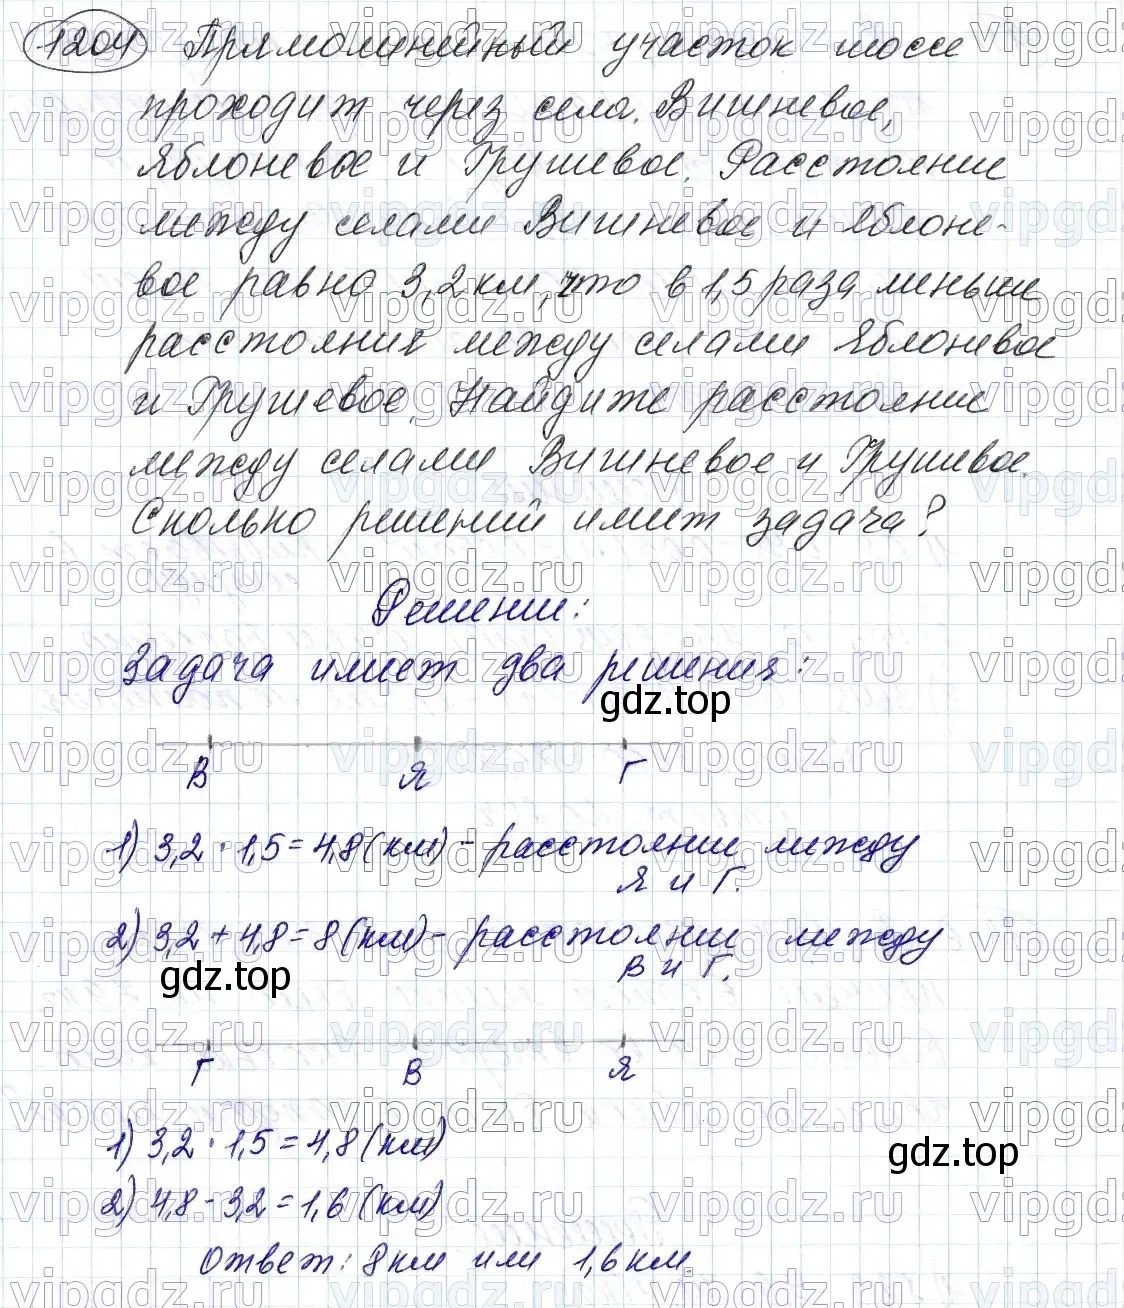 1204 Прямолинейный участок шоссе
проходит через села Вишневое,
Яблоневое и Грушевое. Расстояние
между селами Вишневое и Яблоне-
вое равно 3,2 км, что в 1,5 раза меньше
расстояния между селами Яблоневое
и Грушевое. Найдите расстояние
между селами Вишневое и Грушевое.
Сколько решений имеет задача?
Решение:
Задача имеет два решения:
gdz.top
В Я Г
1) 3,2 · 1,5 = 4,8 (км) - расстояние между
Я и Г.
2) 3,2 + 4,8 = 8 (км) - расстояние между
В и Г.
gdz.top
Г В Я
1) 3,2 · 1,5 = 4,8 (км)
gdz.top
2) 4,8 - 3,2 = 1,6 (км)
Ответ: 8 км или 1,6 км.
vipgdz.ru